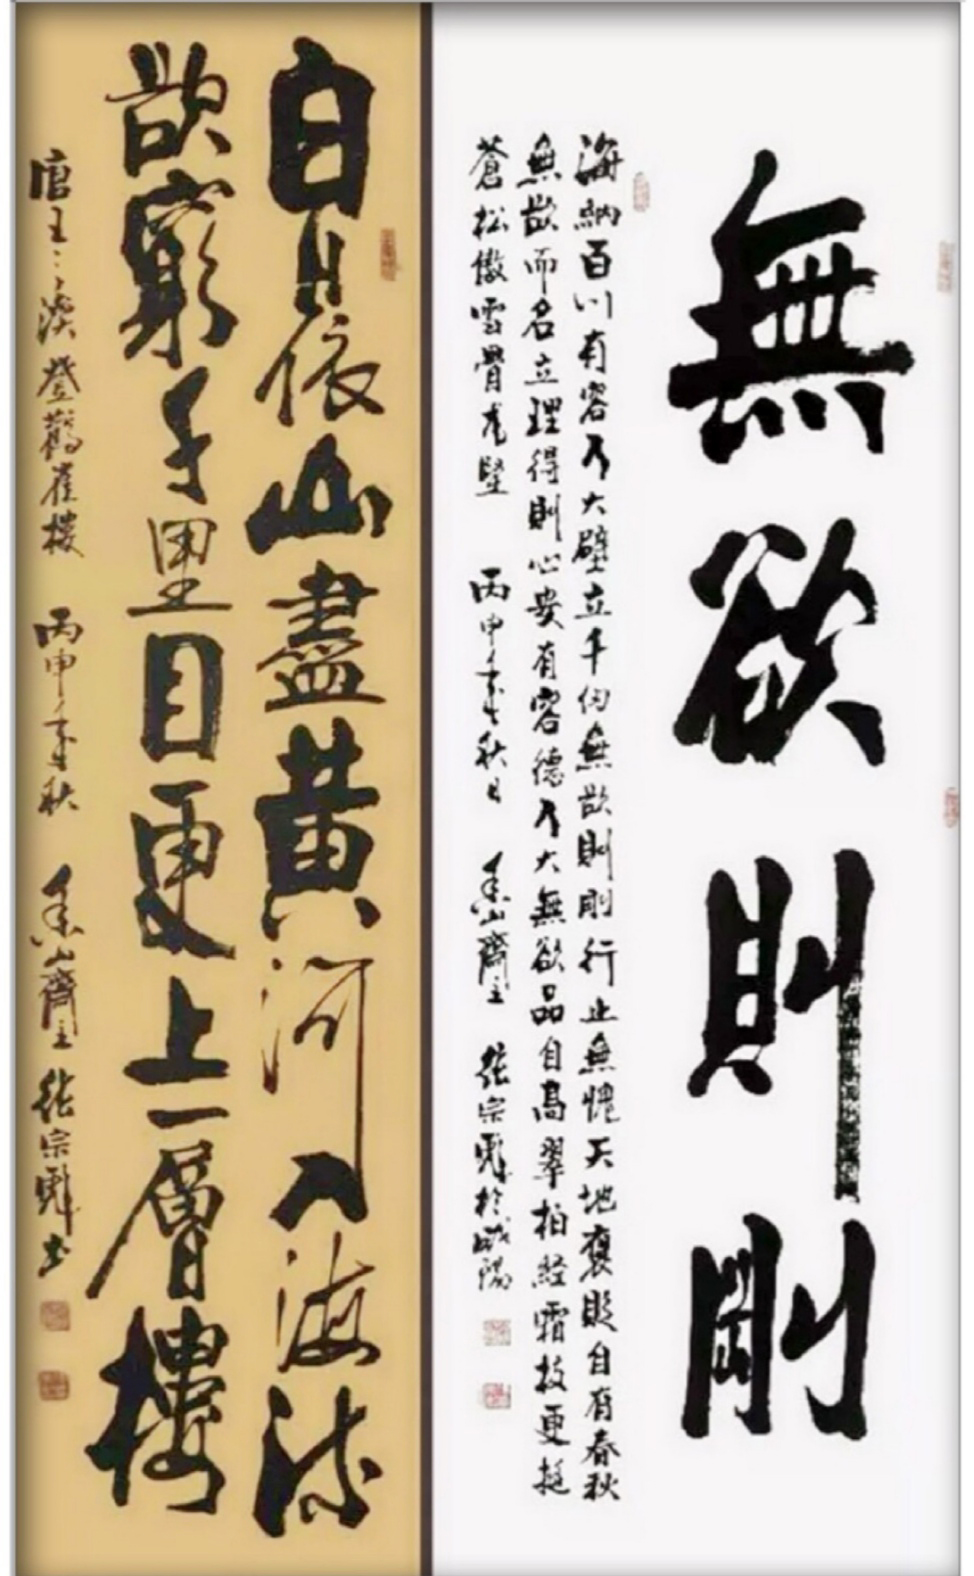 無欲則剛
海納百川有容乃大壁立千仞無欲則剛行止無愧天地褒貶自有春秋
無欲而名立理得則心安有容德乃大無欲品自高翠柏經霜枝更挺
蒼松傲雪骨尤堅 丙申年秋日 山齋主 張宗彪於咸陽
白日依山盡黄河入海流
欲窮千里目更上一層樓
唐王之渙登鸛雀樓 丙申年秋 山齋主 張宗彪書